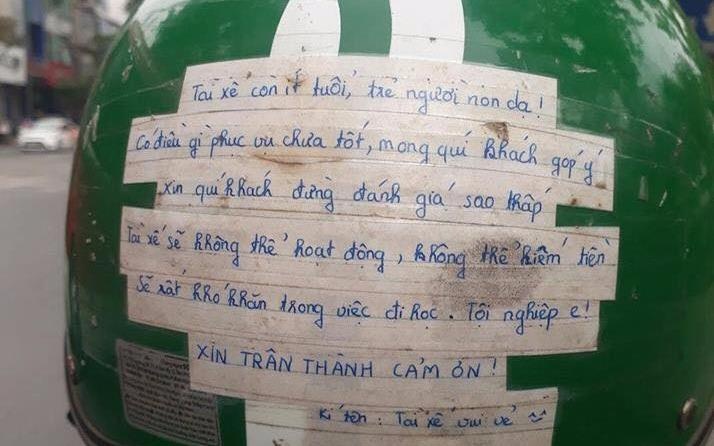 Tài xế còn ít tuổi, trẻ người non dạ!
Có điều gì phục vụ chưa tốt, mong quí khách góp ý
Xin quí khách đừng đánh giá sao thấp
Tài xế sẽ không thể hoạt động, không thể kiếm tiền
Sẽ rất khó khăn trong việc đi học. Tội nghiệp e!
XIN TRÂN THÀNH CẢM ƠN!
Kí tên: Tài xế vui vẻ